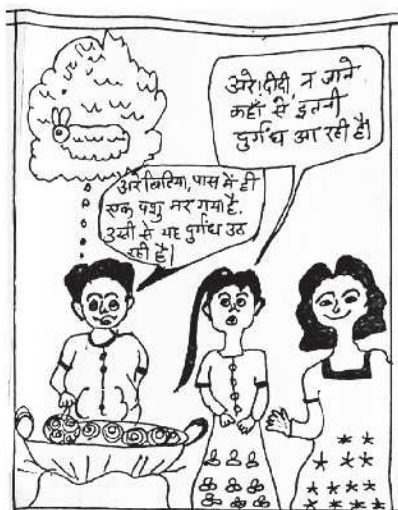 अरे! दीदी, न जाने
कहाँ से इतनी
दुर्गंध आ रही है।
अरे बिटिया, पास में ही
एक पशु मर गया है.
उसी से यह दुर्गंध उठ
रही है।